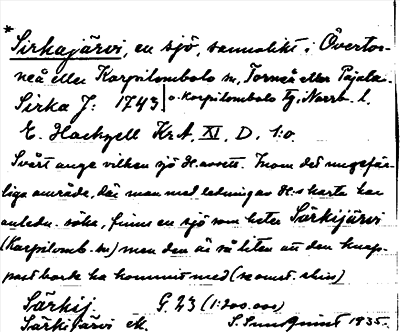 * Sirkajärvi, en sjö, sannolikt i Övertor-
neå eller Karpilombolo sn, Torneå eller Pajala-
Sirka J: 1743 | o. Korpilombolo tg, Norrb. l.
E. Hackzell KrA, XI, D, 1:o.
Svårt ange vilken sjö H. avsett. Inom det ungefär-
liga område, där man med ledning av H:s karta har
anledn. söka, finns en sjö som heter Särkijärvi
(Karpilomb. sn) men den är så liten att den knap-
past borde ha kommit med
Särkij. G. 23 (1:200.000)
Särkijärvi ek. 1935.